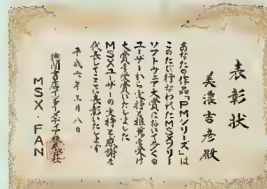 表彰状
美濃吉彦殿
あなたの作品「PMシリーズ」は
このたび行なわれたMSXフリー
ソフトウェア大賞において多くの
ユーザーから支持と推薦を受け
大賞を受賞いたしました
MSXユーザーの支持と感謝を
代表してここに表彰いたします
平成六年三月八日
徳間書店インターメディア株式会社
MSX・FAN